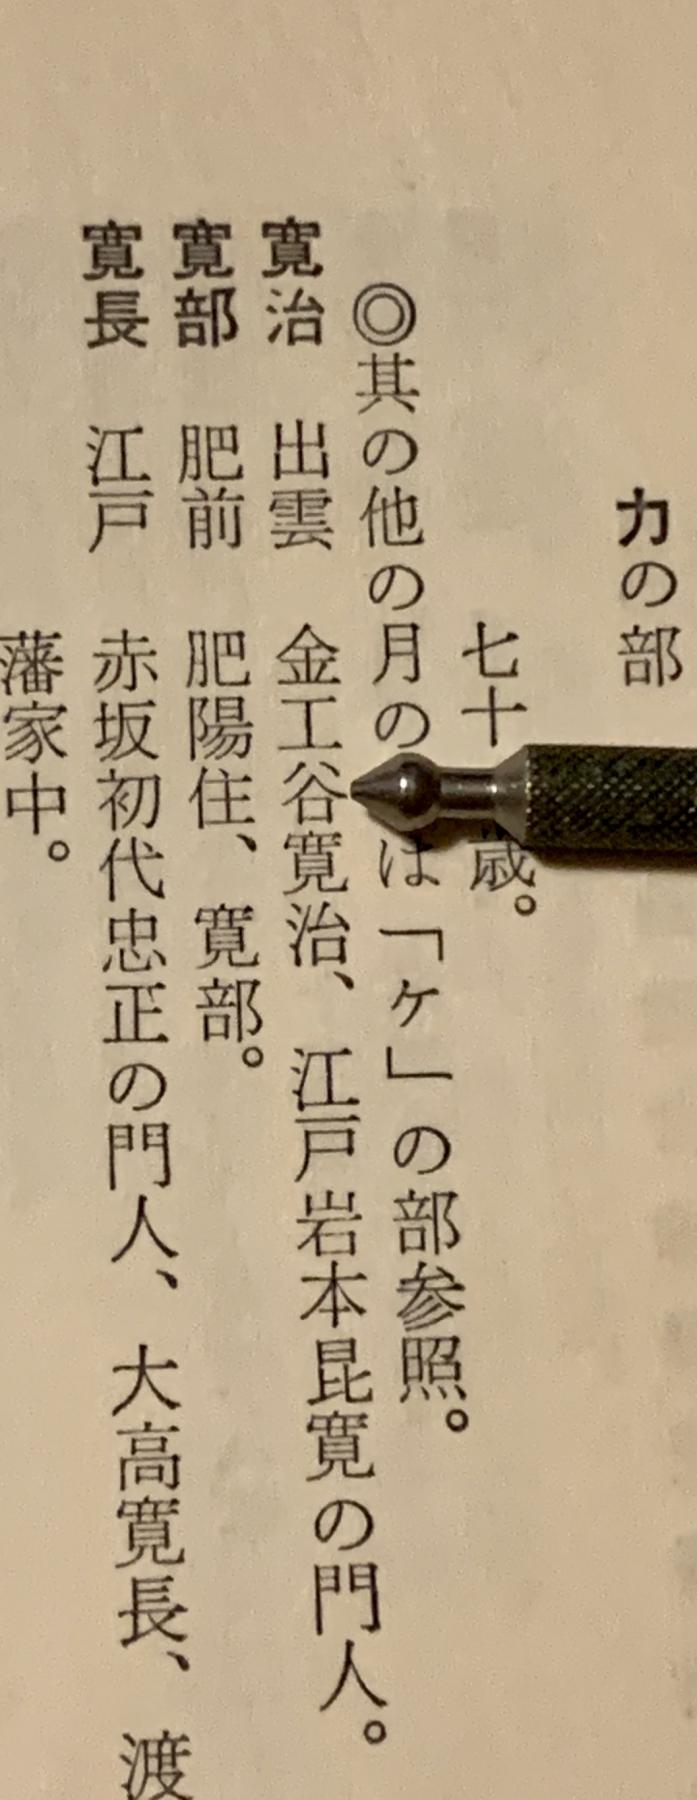 力の部
七十 歳。
◎其の他の月の は「ヶ」の部参照。
寛治 出雲 金工谷寛治、江戸岩本昆寛の門人。
寛部 肥前 肥陽住、寛部。
寛長 江戸 赤坂初代忠正の門人、大高寛長、渡
藩家中。